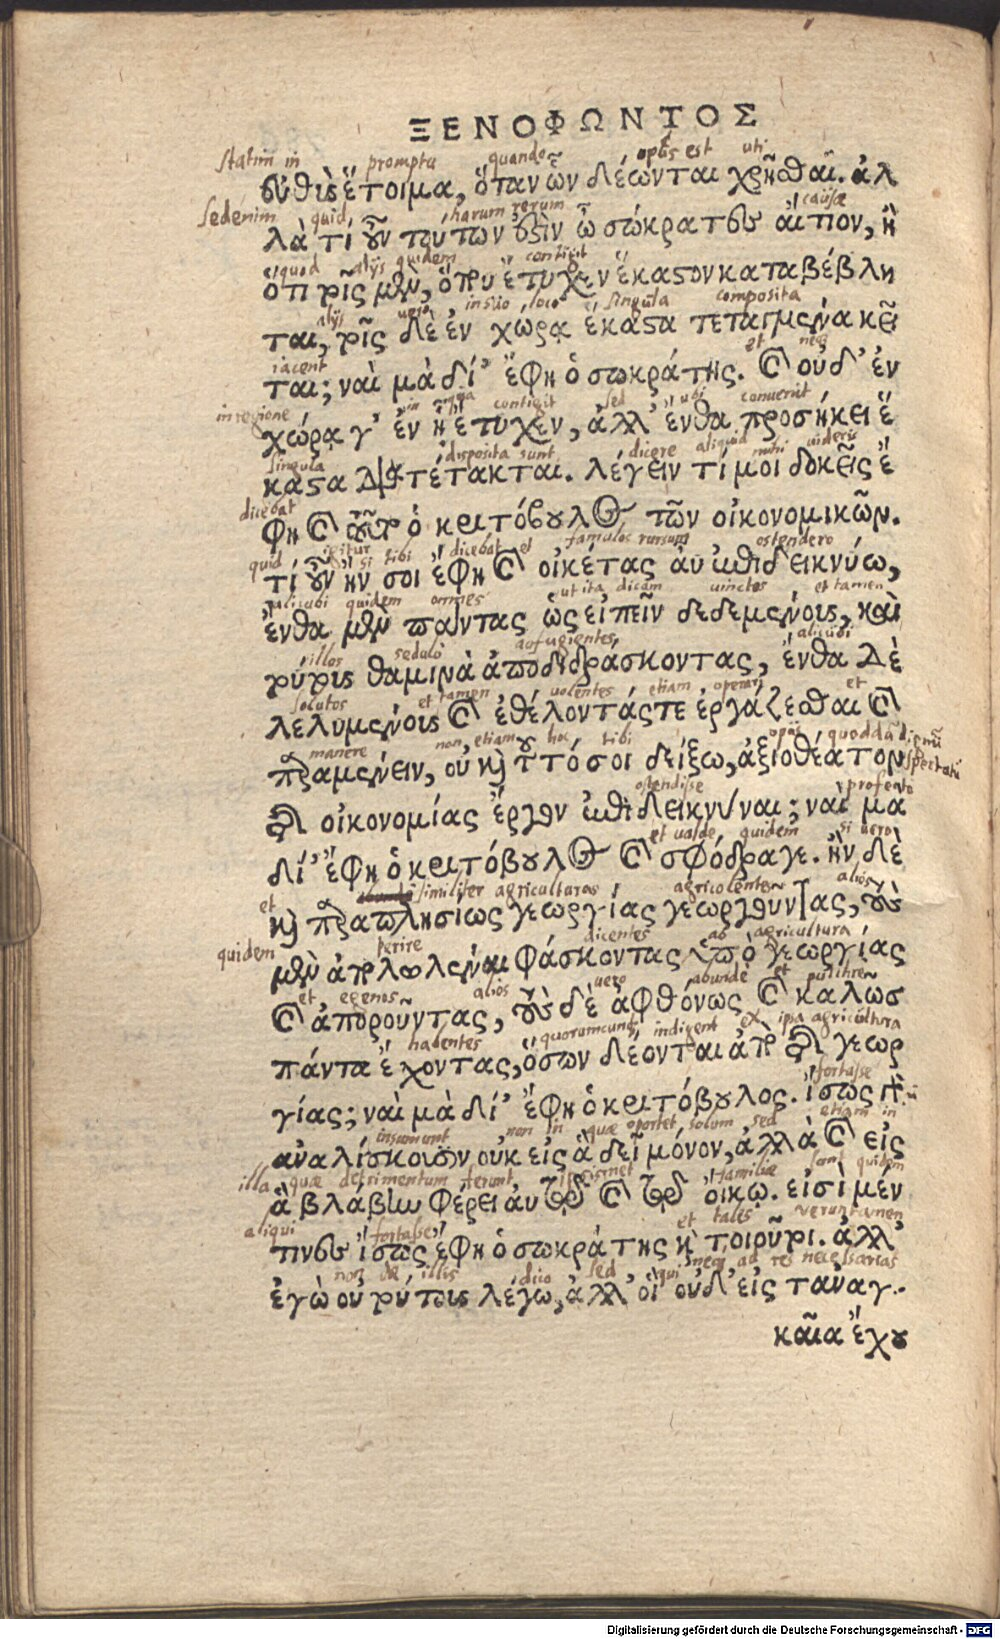 ΞΕΝΟΦΩΝΤΟΣ
Statim in promptu quando opus est uti
εὐθὺς ἕτοιμα, ὅταν ὧν δέωνται χρῆσθαι. ἀλ
Sed enim quid harum rerum causæ
λὰ τί οὖν τούτων ἐστὶν ὦ σώκρατες αἴτιον, ἢ
quod alijs quidem contigit
ὅτι τοῖς μὲν, ὅπου ἔτυχεν ἕκαστον καταβέβλη
alijs uero in suo loco singula composita
ται, τοῖς δὲ ἐν χώρᾳ ἕκαστα τεταγμένα κεῖ
iacent et neq
ται; ναὶ μὰ δί' ἔφη ὁ σωκράτης. καὶ οὐδ' ἐν
in regione in qua contigit sed ubi conuenit
χώρᾳ γ' ἐν ᾗ ἔτυχεν, ἀλλ' ἔνθα προσήκει ἕ
singula disposita sunt dicere aliquid mihi uideris
καστα διατέτακται. λέγειν τί μοι δοκεῖς ἔ
dicebat
φη καὶ τοῦτο ὁ κριτόβουλος τῶν οἰκονομικῶν.
quid igitur si tibi dicebat et famulos rursum ostendero
τί οὖν ἤν σοι ἔφη καὶ οἰκέτας αὖ ἐπιδεικνύω,
alicubi quidem omnes ut ita dicam uinctos et tamen
ἔνθα μὲν πάντας ὡς εἰπεῖν δεδεμένους, καὶ
illos sedulo aufugientes alicubi
τούτους θαμινὰ ἀποδιδράσκοντας, ἔνθα δὲ
solutos et tamen uolentes etiam operari et
λελυμένους καὶ ἐθέλοντάς τε ἐργάζεσθαι καὶ
manere non etiam hoc tibi opus quoddã dignũ
παραμένειν, οὐ καὶ τοῦτό σοι δείξω, ἀξιοθέατον
spectatu
ostendisse profecto
τῆς οἰκονομίας ἔργον ἐπιδεικνύναι; ναὶ μὰ
et ualde quidem si uero
δί' ἔφη ὁ κριτόβουλος καὶ σφόδρα γε. ἢν δὲ
et similiter agriculturas agricolentes alios
καὶ παραπλησίως γεωργίας γεωργοῦντας, τοὺς
quidem perire dicentes ab agricultura
μὲν ἀπολωλέναι φάσκοντας ὑπὸ γεωργίας
et egenos alios uero abunde et pulchre
καὶ ἀποροῦντας, τοὺς δὲ ἀφθόνως καὶ καλῶς
habentes quorumcunq indigent ex ipsa agricultura
πάντα ἔχοντας, ὅσων δέονται ἀπὸ τῆς γεωρ
fortasse
γίας; ναὶ μὰ δί' ἔφη ὁ κριτόβουλος. ἴσως γὰρ
insumunt non in quæ oportet solum sed etiam in
ἀναλίσκουσιν οὐκ εἰς ἃ δεῖ μόνον, ἀλλὰ καὶ εἰς
illa quæ detrimentum ferunt familiæ sunt quidem
ἃ βλάβην φέρει αὐτῷ καὶ τῷ οἴκῳ. εἰσὶ μέν
aliqui fortasse et tales ueruntamen
τινες ἴσως ἔφη ὁ σωκράτης καὶ τοιοῦτοι. ἀλλ'
non de illis dico sed qui neq ad res necessarias
ἐγὼ οὐ τούτους λέγω, ἀλλ' οἳ οὐδ' εἰς τἀναγ-
καῖα ἔχου
Digitalisierung gefördert durch die Deutsche Forschungsgemeinschaft - DFG